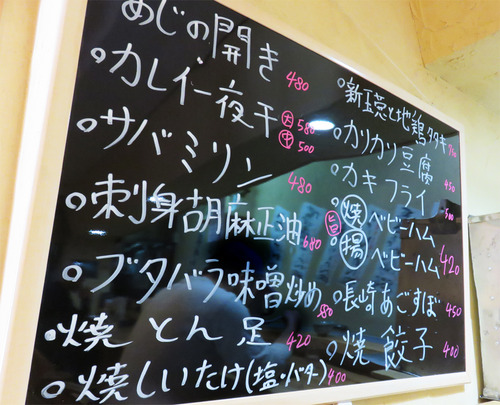 めじの開き 480
○カレイ一夜干 大580 中500
○サバミリン 480
○刺身胡麻正油 680
○ブタバラ味噌炒め 580
○焼とん足 420
○焼しいたけ(塩・バター) 400
○新玉葱と地鶏タタキ 750
○カリカリ豆腐 450
○カキフライ 500
旨 焼ベビーハム
揚ベビーハム 420
○長崎あごすぼ 450
○焼餃子 400